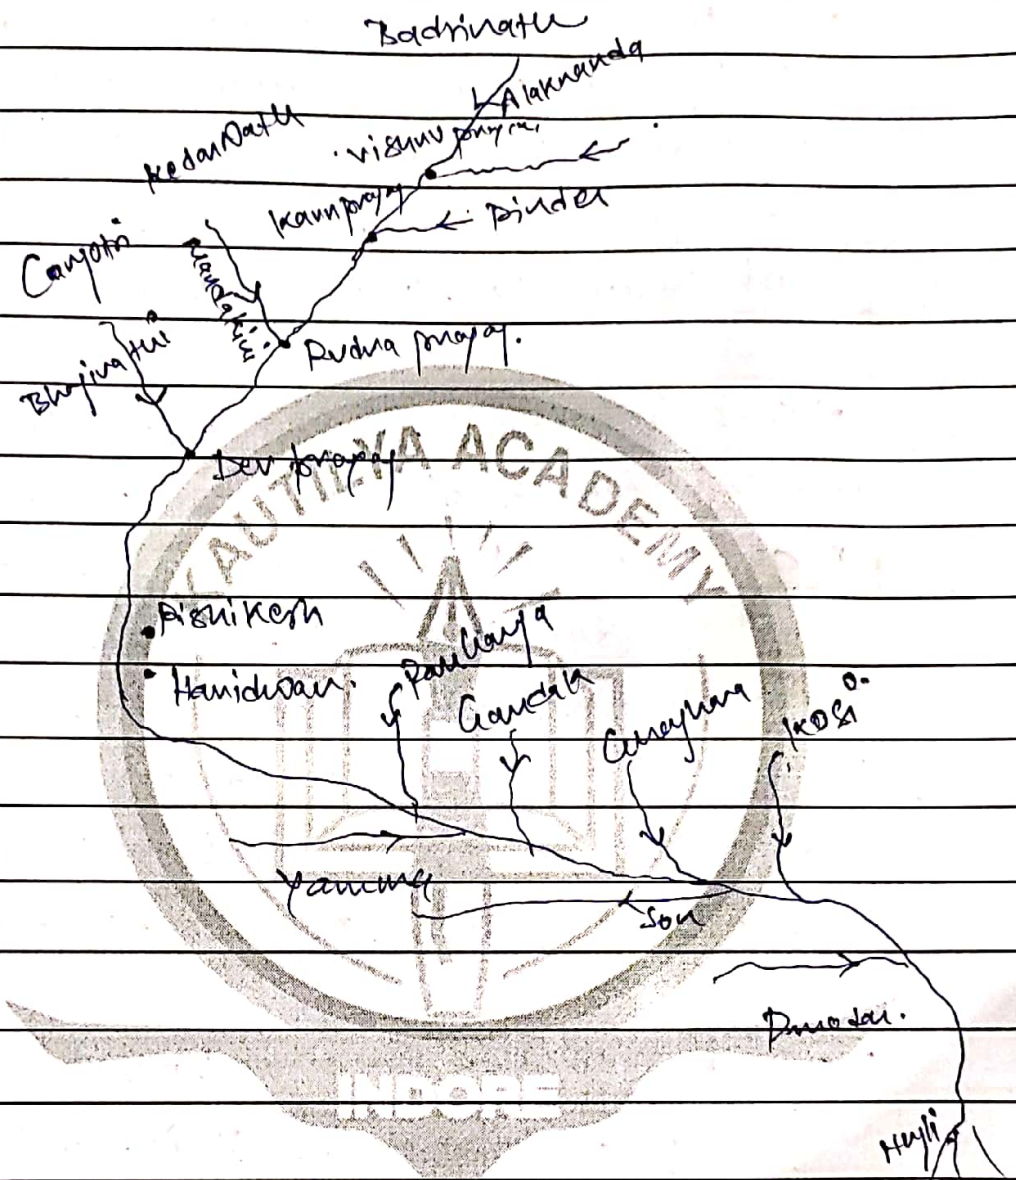 Badrinath
Alaknanda
Kedarnath
Vishnu prayag
Karnprayag
Pinder
Gangotri
Mandakini
Bhagirathi
Rudra prayag.
Dev prayag
KAUTILYA ACADEMY
Rishikesh
Haridwar.
Ramganga
Gandak
Ghaghara
Kosi
Yamuna
Son
Damodar.
INDORE
Hugli